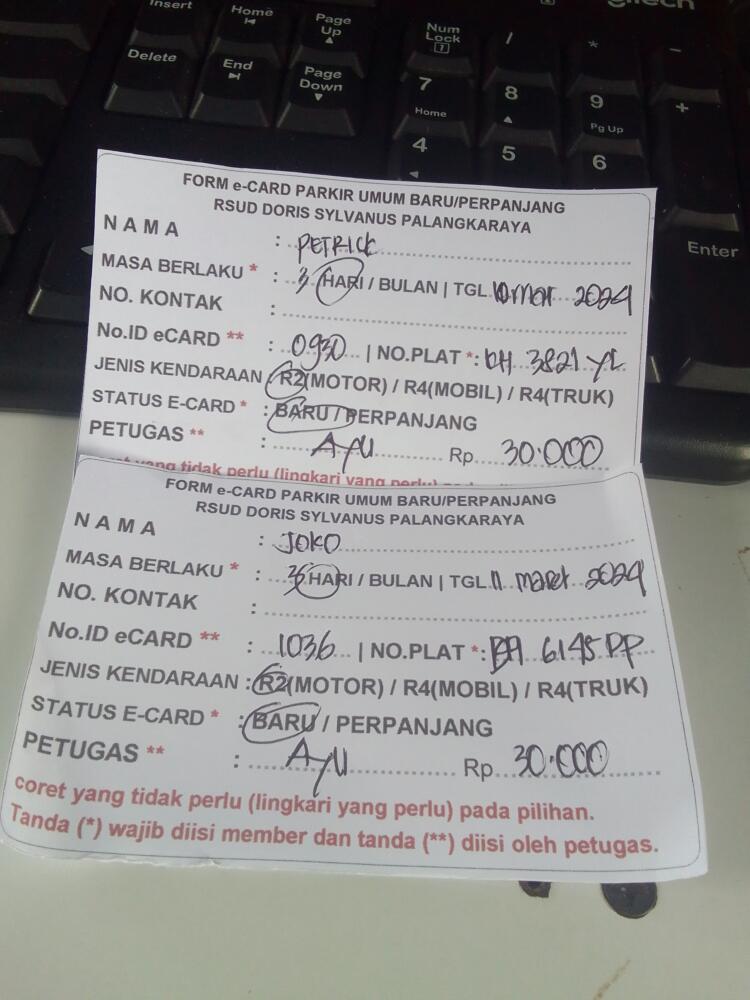 Insert
Home
Page Up
Delete
End
Page Down
Num Lock
/
*
-
7
Home
8
9
Pg Up
+
4
5
6
Enter
FORM e-CARD PARKIR UMUM BARU/PERPANJANG
RSUD DORIS SYLVANUS PALANGKARAYA
NAMA : PETRICK
MASA BERLAKU * : 3 HARI / BULAN | TGL. 10 mar 2024
NO. KONTAK :
No.ID eCARD ** : 0930 | NO.PLAT *: KH 3821 YL
JENIS KENDARAAN : R2(MOTOR) / R4(MOBIL) / R4(TRUK)
STATUS E-CARD * : BARU / PERPANJANG
PETUGAS ** : AYU Rp 30.000
coret yang tidak perlu (lingkari yang perlu)
FORM e-CARD PARKIR UMUM BARU/PERPANJANG
RSUD DORIS SYLVANUS PALANGKARAYA
NAMA : JOKO
MASA BERLAKU * : HARI / BULAN | TGL. 11 maret 2024
NO. KONTAK :
No.ID eCARD ** : 1036 | NO.PLAT *: 6145 PP
JENIS KENDARAAN : R2(MOTOR) / R4(MOBIL) / R4(TRUK)
STATUS E-CARD * : BARU / PERPANJANG
PETUGAS ** : AYU Rp 30.000
coret yang tidak perlu (lingkari yang perlu) pada pilihan.
Tanda (*) wajib diisi member dan tanda (**) diisi oleh petugas.